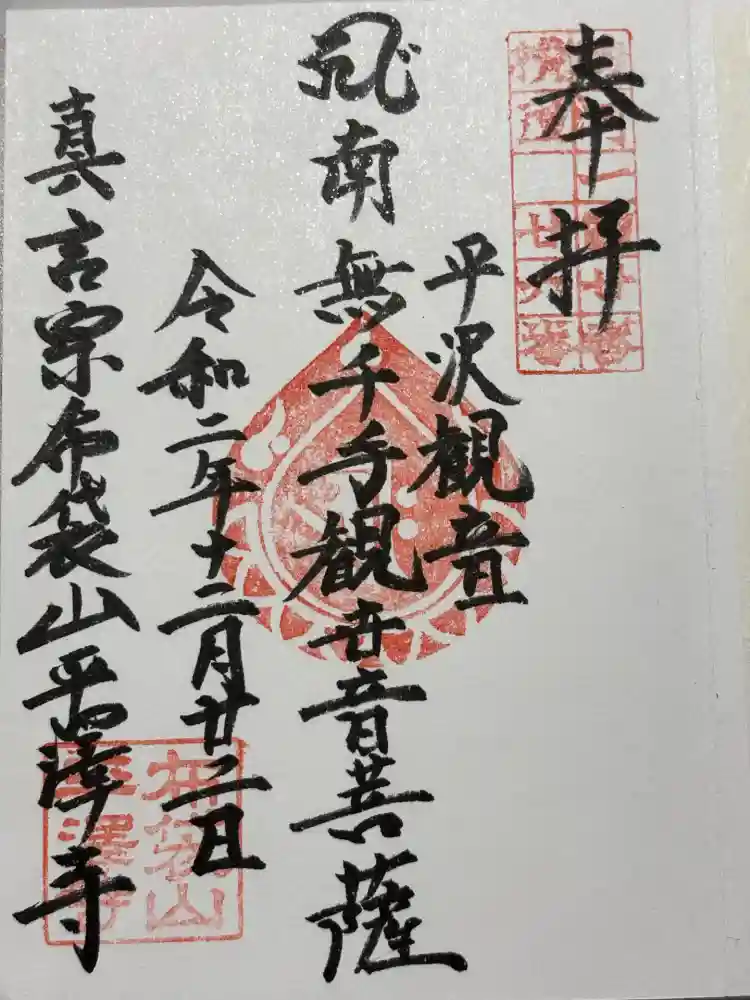 奉拝
平沢観音
南無千手観世音菩薩
令和二年十二月廿二日
真言宗布袋山平澤寺
布袋山
平澤寺